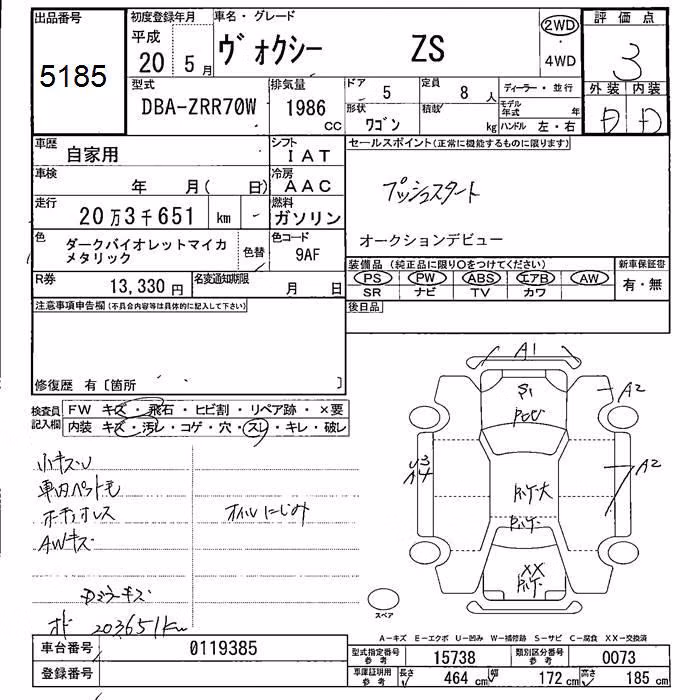 出品番号 5185
初度登録年月 平成 20年 5月
車名・グレード ヴォクシー ZS
2WD ・ 4WD
評価点 3
外装 内装
D D
型式 DBA-ZRR70W
排気量 1986 cc
ドア 5
形状 ワゴン
定員 8 人
積載 kg
ディーラー・並行
モデル年式 年
ハンドル 左・右
車歴 自家用
シフト IAT
車検 年 月( 日)
冷房 AAC
走行 20万3千651 km
燃料 ガソリン
色 ダークバイオレットマイカメタリック
色替
色コード 9AF
R券 13,330 円
名変通知期限 月 日
セールスポイント(正常に機能するものに限ります)
プッシュスタート
オークションデビュー
装備品(純正品に限り○をつけてください)
新車保証書
PS PW ABS エアB AW
SR ナビ TV カワ
有・無
後日品
注意事項申告欄(不具合内容等は具体的に記入して下さい)
修復歴 有〔箇所 〕
検査員記入欄
FW キズ・飛石・ヒビ割・リペア跡・×要
内装 キズ・汚レ・コゲ・穴・スレ・キレ・破レ
小キズU
車内ペット毛
ホキュオレス
オイルにじみ
AWキズ
Dミラーキズ
オド 203651km
A1
S1
A2
U3
A4
A2
XX
スペア
A-キズ E-エクボ U-凹み W-補修跡 S-サビ C-腐食 XX-交換済
車台番号 0119385
登録番号
型式指定番号 参考 15738
類別区分番号 参考 0073
車庫証明用 参考 長さ 464 cm 幅 172 cm 高さ 185 cm